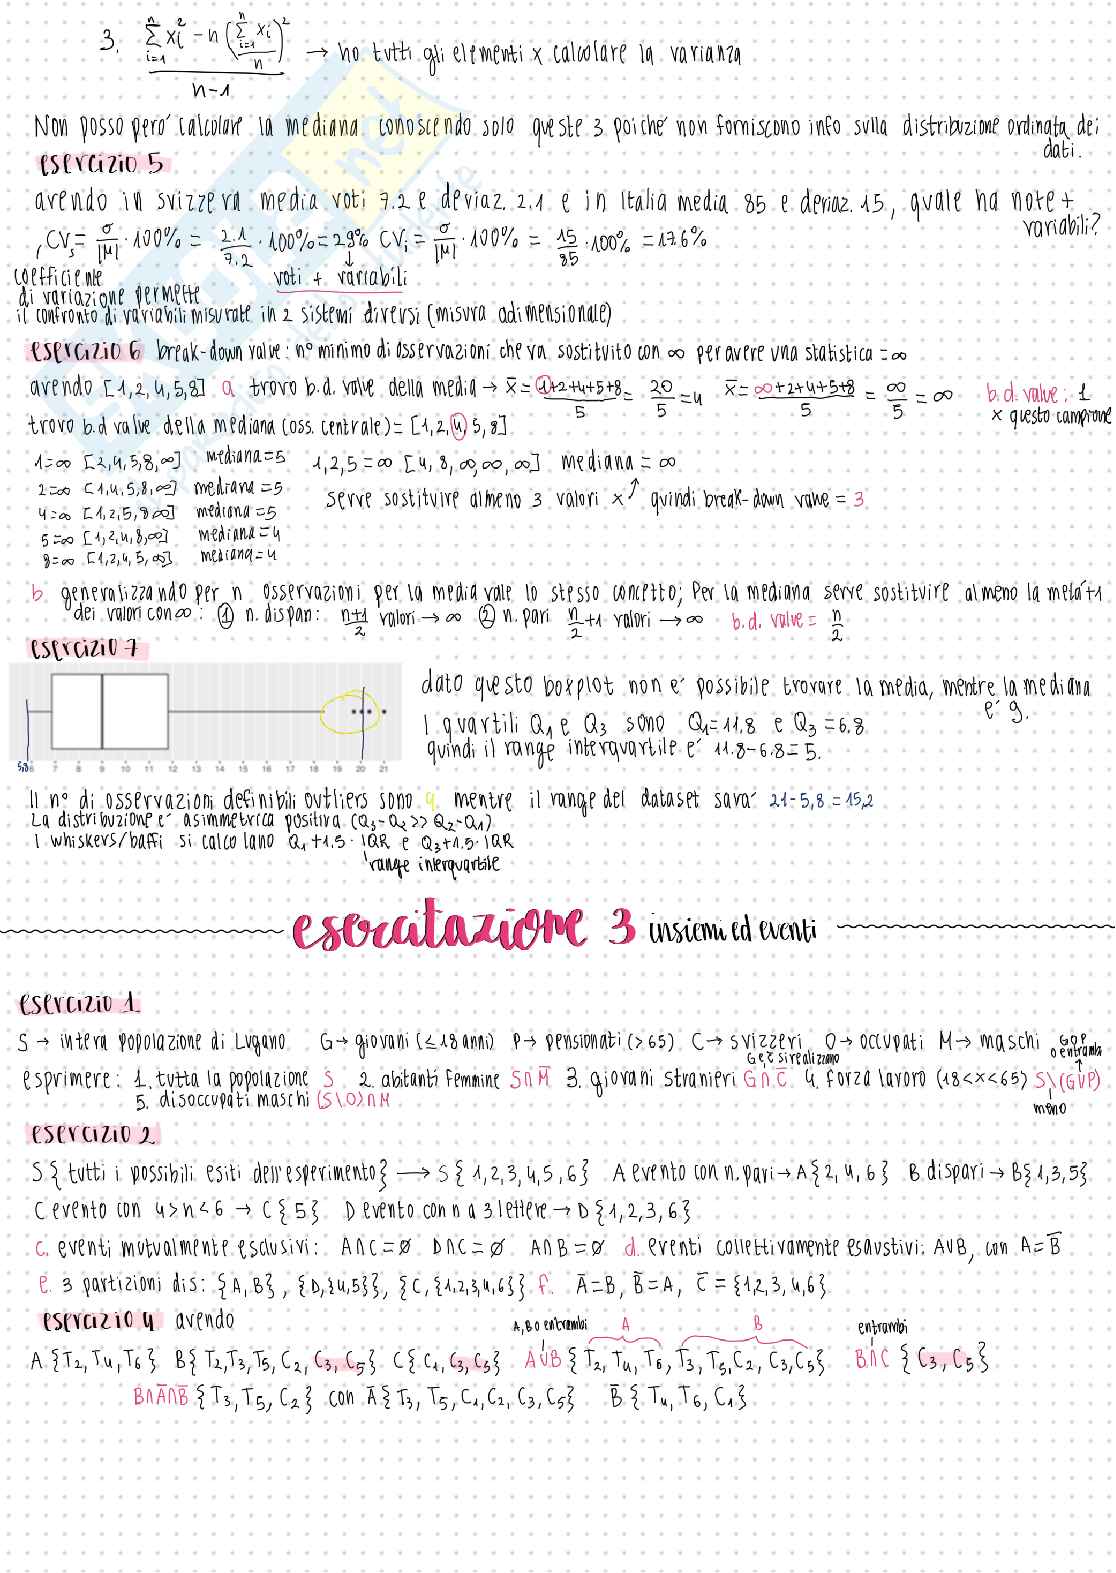 3. \frac{\sum_{i=1}^{n} x_i^2 - n \left(\frac{\sum_{i=1}^{n} x_i}{n}\right)^2}{n-1} → ho tutti gli elementi x calcolare la varianza
Non posso però calcolare la mediana conoscendo solo queste 3 poiché non forniscono info sulla distribuzione ordinata dei
dati.
esercizio 5
avendo in svizzera media voti 7.2 e deviaz. 2.1 e in Italia media 85 e deviaz. 15, quale ha note +
variabili?
CVs = σ/|M| · 100% = 2.1/7.2 · 100% = 29% CVi = σ/|M| · 100% = 15/85 · 100% = 17.6%
coefficiente
voti + variabili
di variazione permette
il confronto di variabili misurate in 2 sistemi diversi (misura adimensionale)
esercizio 6 break-down value: n° minimo di osservazioni che va sostituito con ∞ per avere una statistica = ∞
avendo [1,2,4,5,8] a trovo b.d. value della media → x̄ = 1+2+4+5+8/5 = 20/5 = 4 x̄ = ∞+2+4+5+8/5 = ∞/5 = ∞ b.d. value: 1
x questo campione
trovo b.d value della mediana (oss. centrale) = [1,2,4,5,8]
1=∞ [2,4,5,8,∞] mediana=5 1,2,5=∞ [4,8,∞,∞,∞] mediana = ∞
2=∞ [1,4,5,8,∞] mediana=5 serve sostituire almeno 3 valori x ↗ quindi break-down value = 3
4=∞ [1,2,5,8,∞] mediana=5
5=∞ [1,2,4,8,∞] mediana=4
8=∞ [1,2,4,5,∞] mediana=4
b generalizzando per n osservazioni per la media vale lo stesso concetto; Per la mediana serve sostituire almeno la metà+1
dei valori con ∞: ① n. dispari: n+1/2 valori → ∞ ② n. pari n/2+1 valori → ∞ b.d. value = n/2
esercizio 7
dato questo boxplot non è possibile trovare la media, mentre la mediana
è 9.
I quartili Q1 e Q3 sono Q1=11.8 e Q3=6.8
quindi il range interquartile è 11.8-6.8=5.
5,8 6 7 8 9 10 11 12 13 14 15 16 17 18 19 20 21
Il n° di osservazioni definibili outliers sono 4 mentre il range del dataset sarà 21-5,8=15,2
La distribuzione è asimmetrica positiva (Q3-Q2 >> Q2-Q1)
I whiskers/baffi si calcolano Q1+1.5·IQR e Q3+1.5·IQR
range interquartile
esercitazione 3 insiemi ed eventi
esercizio 1
S → intera popolazione di Lugano G → giovani (≤18 anni) P → pensionati (>65) C → svizzeri O → occupati M → maschi
G o P
o entrambi
G e C̄ si realizzano
esprimere: 1. tutta la popolazione S 2. abitanti femmine S∩M̄ 3. giovani stranieri G∩C̄ 4. forza lavoro (18<x<65) S\(G∪P)
5. disoccupati maschi (S\O)∩M
meno
esercizio 2
S{tutti i possibili esiti dell'esperimento} → S{1,2,3,4,5,6} A evento con n. pari → A{2,4,6} B dispari → B{1,3,5}
C evento con 4>n<6 → C{5} D evento con n a 3 lettere → D{1,2,3,6}
c. eventi mutualmente esclusivi: A∩C=∅ D∩C=∅ A∩B=∅ d. eventi collettivamente esaustivi: A∪B, con A=B̄
e. 3 partizioni di s: {A,B}, {D,{4,5}}, {C,{1,2,3,4,6}} f. Ā=B, B̄=A, C̄={1,2,3,4,6}
esercizio 4 avendo
A, B o entrambi A B entrambi
A{T2,T4,T6} B{T2,T3,T5,C2,C3,C5} C{C1,C3,C5} A∪B{T2,T4,T6,T3,T5,C2,C3,C5} B∩C{C3,C5}
B∩Ā∩B̄{T3,T5,C2} con Ā{T3,T5,C1,C2,C3,C5} B̄{T4,T6,C1}